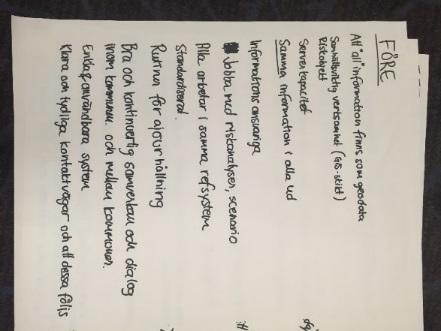 FÖRE
Att "all" information finns som geodata
Samhällsviktig verksamhet (GIS-skikt)
Riskobjekt
Serverkapacitet
Samma information i alla led
Informationsansvariga
Jobba med riskanalyser, scenario
Alla arbetar i samma refsystem
Standardiserat.
Rutin för ajourhållning
Bra och kontinuerlig samverkan och dialog
inom kommunen och mellan kommuner.
Enkla användbara system
Klara och tydliga kontaktvägar och att dessa följs